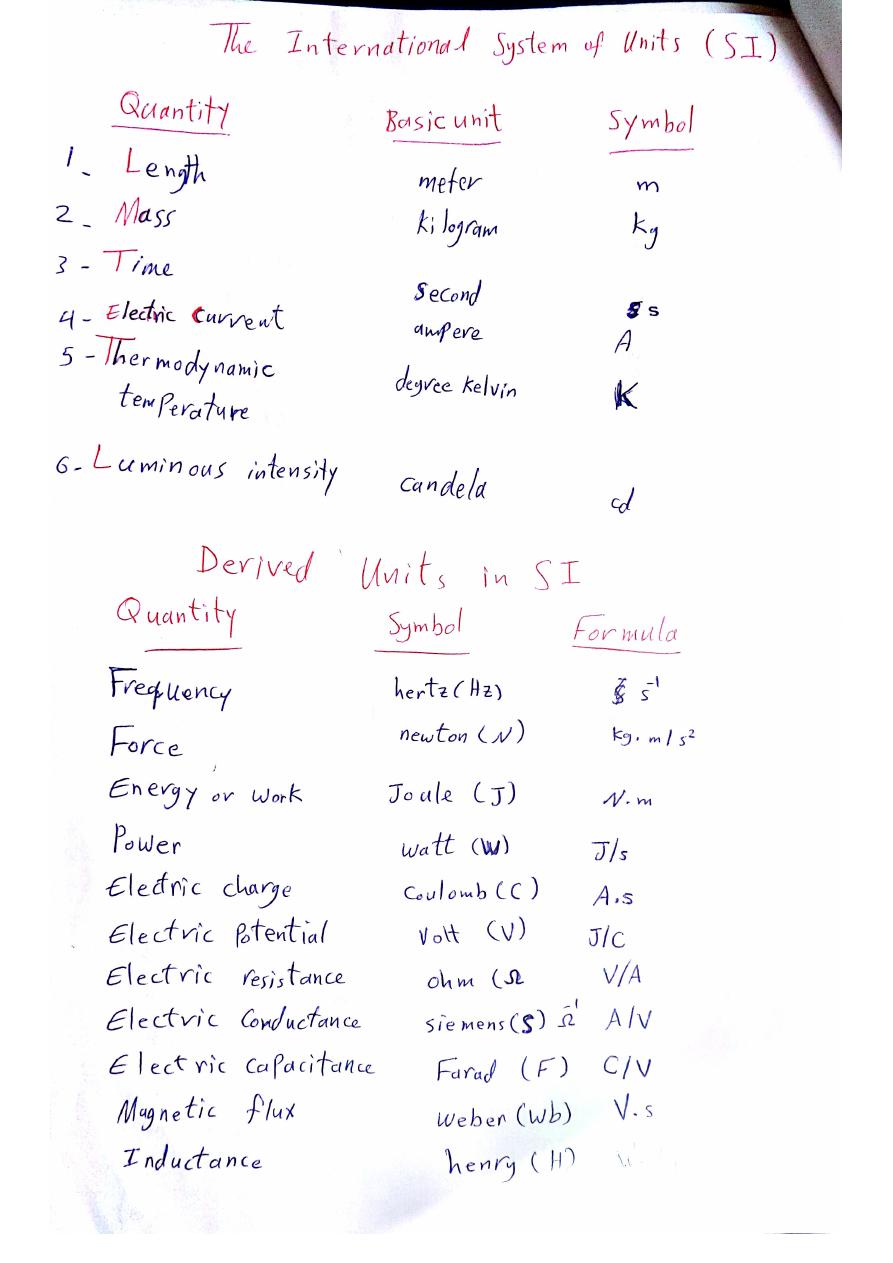 The International System of Units (SI)
Quantity Basic unit Symbol
1- Length meter m
2- Mass kilogram kg
3- Time second s
4- Electric current ampere A
5- Thermodynamic degree kelvin K
temperature
6- Luminous intensity candela cd
Derived Units in SI
Quantity Symbol Formula
Frequency hertz (Hz) s⁻¹
Force newton (N) kg. m/s²
Energy or work Joule (J) N.m
Power watt (W) J/s
Electric charge Coulomb (C) A.s
Electric Potential Volt (V) J/C
Electric resistance ohm (Ω V/A
Electric Conductance siemens (S) Ω⁻¹ A/V
Electric Capacitance Farad (F) C/V
Magnetic flux weber (Wb) V.s
Inductance henry (H)